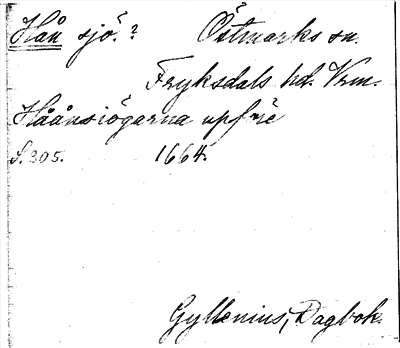 Hån sjö.? Östmarks sn.
Fryksdals hd. Vrm.
Håånsiögarna upfrÿe
S. 305. 1664.
Gyllenius, Dagbok.